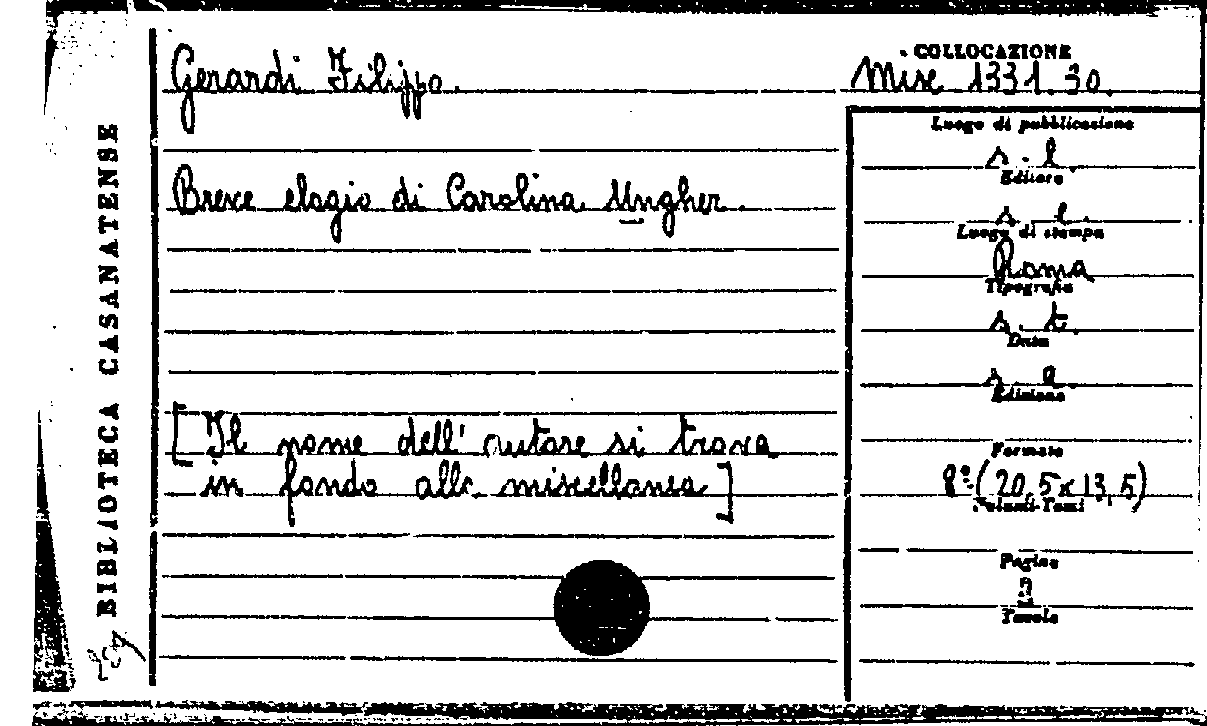 BIBLIOTECA CASANATENSE
Gerardi Filippo.
Breve elogio di Carolina Ungher.
[Il nome dell' autore si trova
in fondo alla miscellanea]
COLLOCAZIONE
Misc 1331.30.
Luogo di pubblicazione
s. l.
Editore
s. e.
Luogo di stampa
Roma
Tipografia
s. t.
Data
s. a.
Edizione
Formato
8° (20,5x13,5)
Volumi-Tomi
Pagine
Tavole